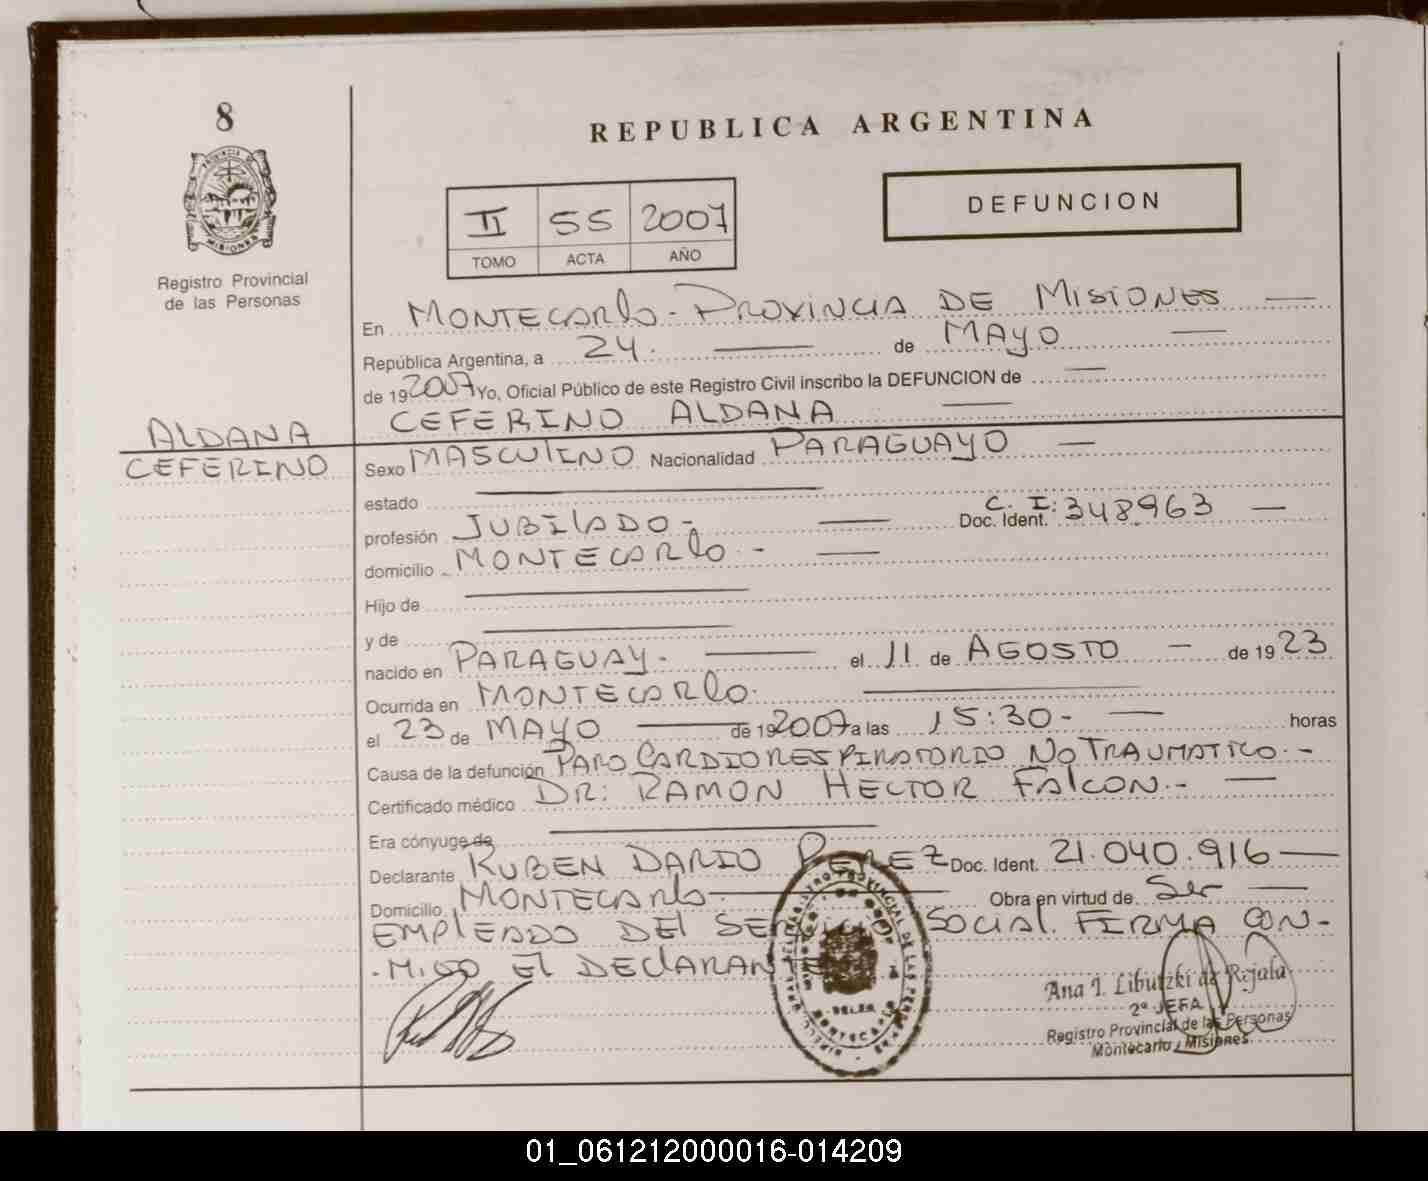 8
REPUBLICA ARGENTINA
PROVINCIA DE
MISIONES
Registro Provincial
de las Personas
DEFUNCION
II 55 2007
TOMO ACTA AÑO
En MONTECARLO - PROVINCIA DE MISIONES
República Argentina, a 24. de MAYO
de 19 2007 Yo, Oficial Público de este Registro Civil inscribo la DEFUNCION de
CEFERINO ALDANA
ALDANA
CEFERINO
Sexo MASCULINO Nacionalidad PARAGUAYO
estado
profesión JUBILADO - Doc. Ident. C. I: 348963
domicilio MONTECARLO -
Hijo de
y de
nacido en PARAGUAY. el 11 de AGOSTO de 19 23
Ocurrida en MONTECARLO.
el 23 de MAYO de 19 2007 a las 15:30- horas
Causa de la defunción PARO CARDIORESPIRATORIO NO TRAUMATICO. -
Certificado médico DR: RAMON HECTOR FALCON. -
Era cónyuge de
Declarante RUBEN DARIO PEREZ Doc. Ident. 21.040.916
Domicilio MONTECARLO Obra en virtud de Ser
EMPLEADO DEL SERVICIO SOCIAL. FIRMA CON-
-MIGO EL DECLARANTE
Ana I. Libutzki de Rejala
2º JEFA
Registro Provincial de las Personas
Montecarlo, Misiones
01_061212000016-014209